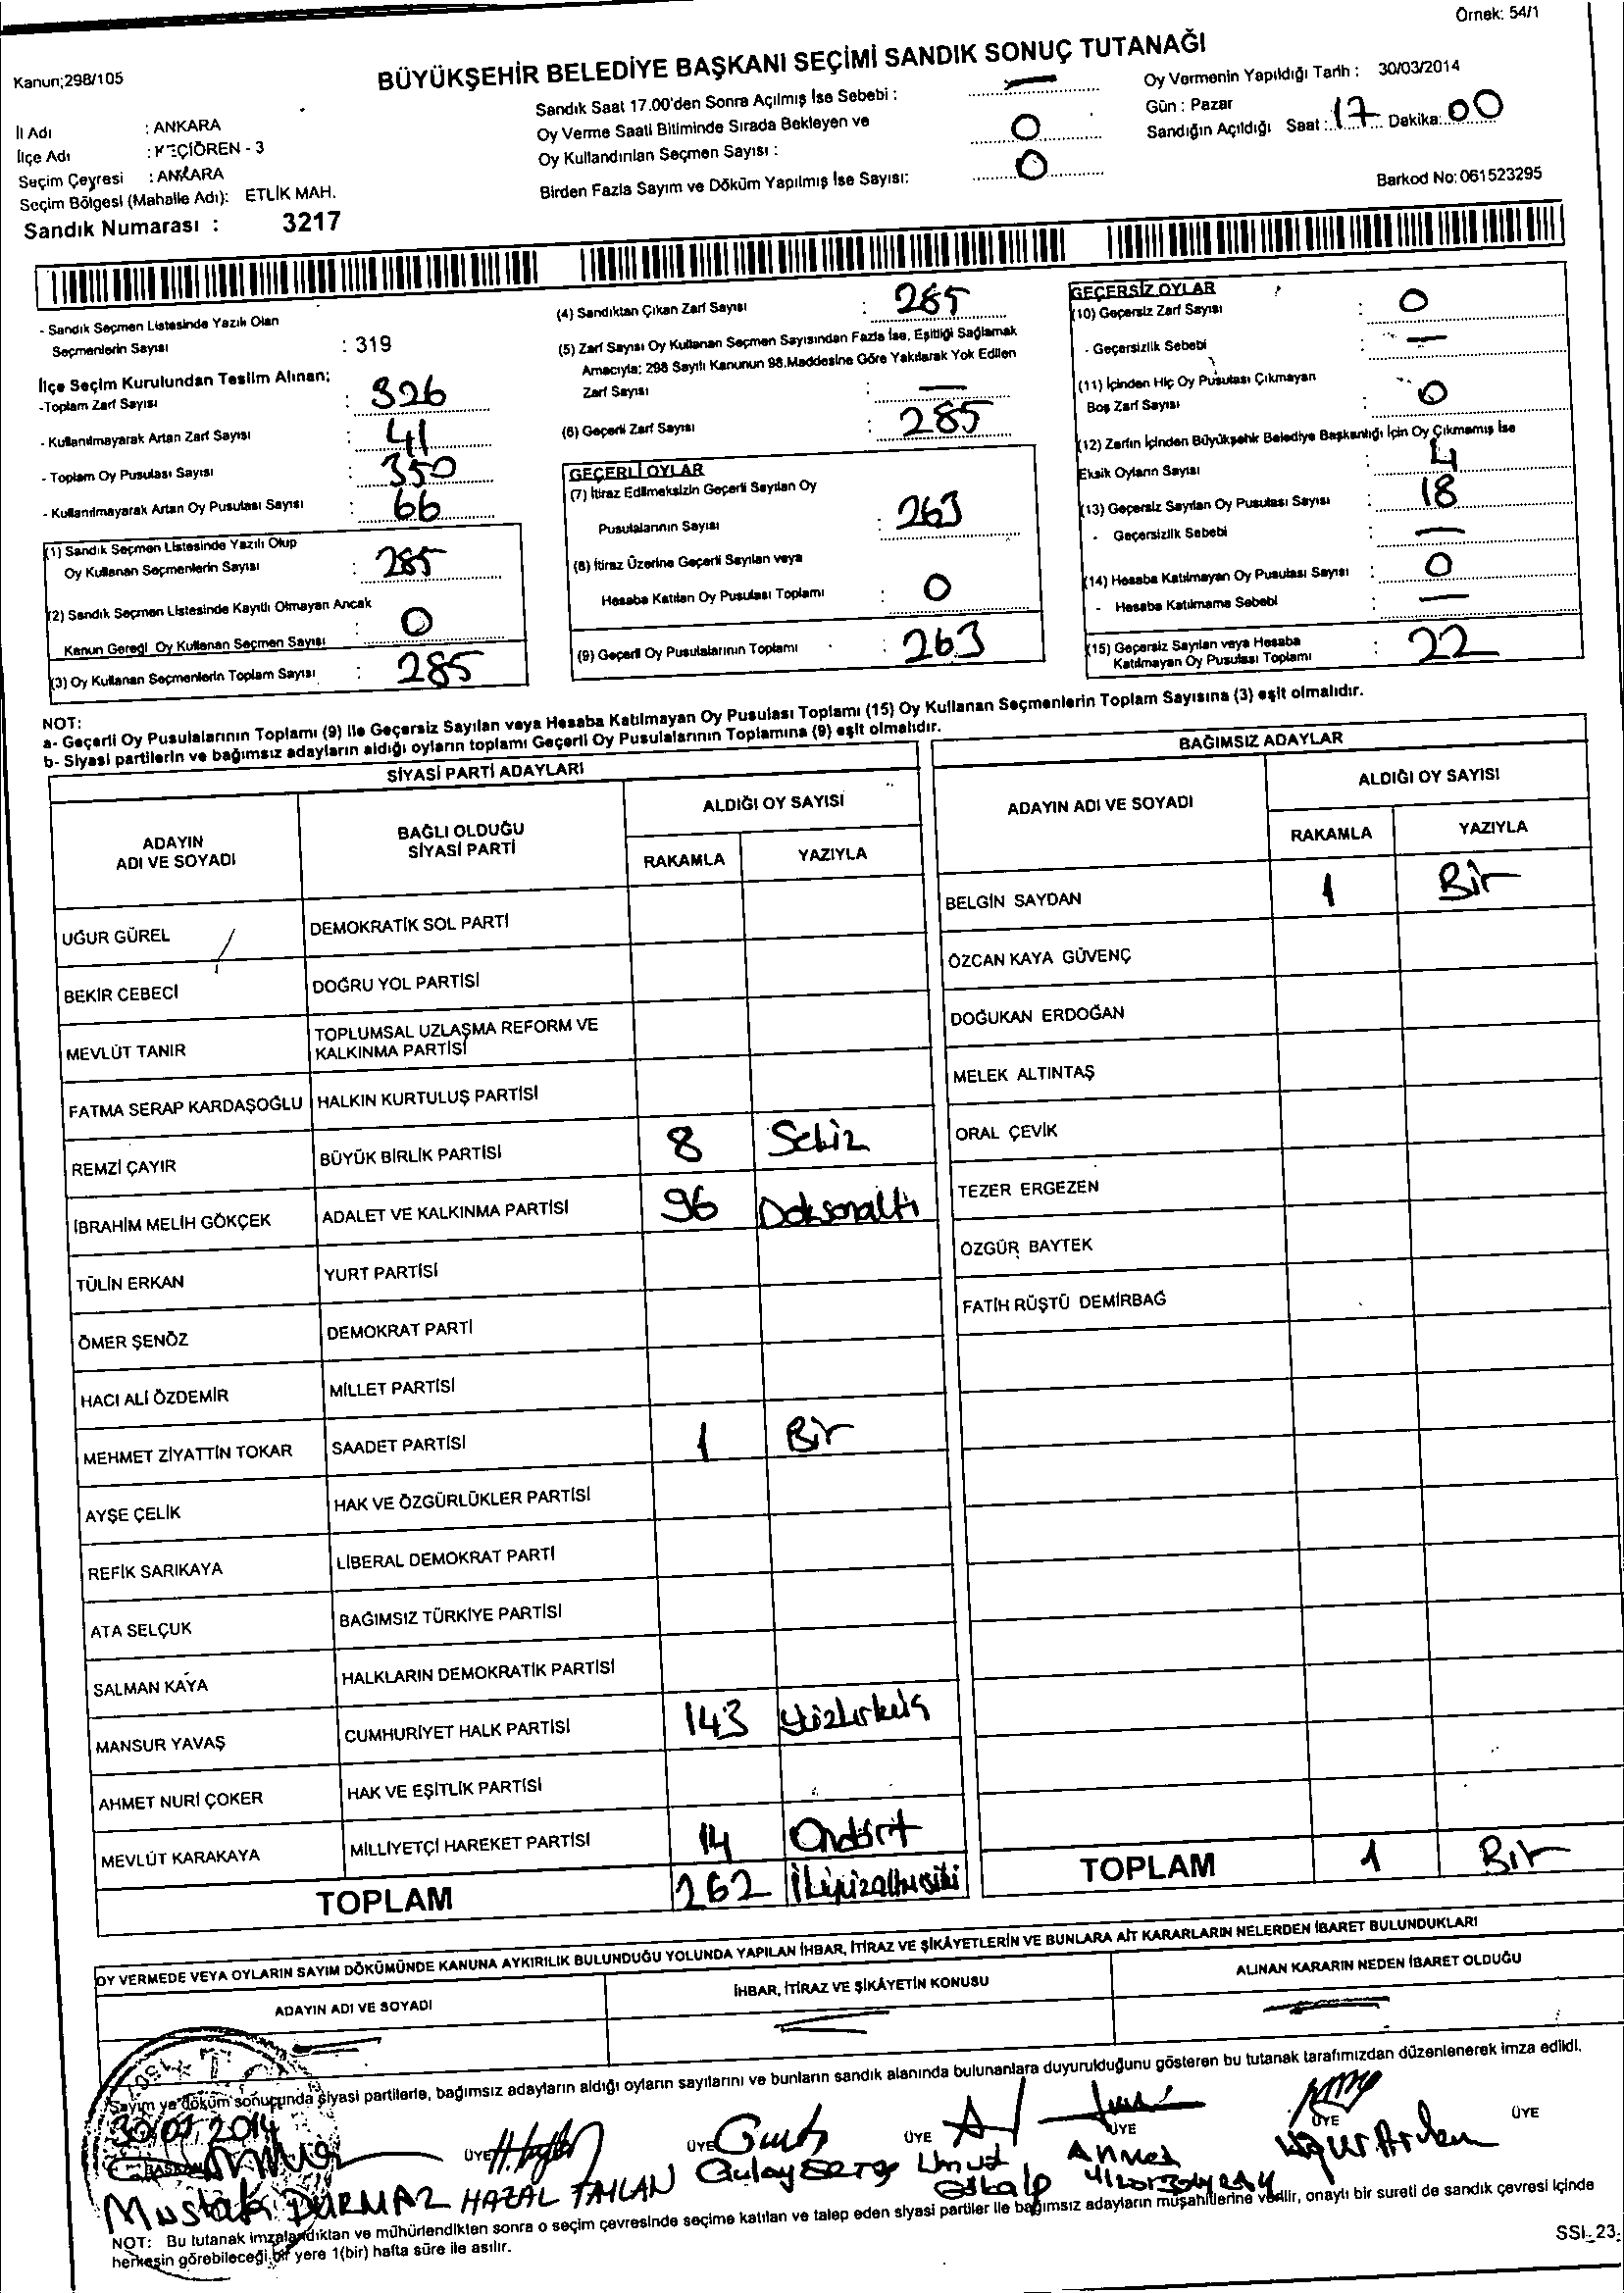 Örnek: 54/1
Kanun;298/105
BÜYÜKŞEHİR BELEDİYE BAŞKANI SEÇİMİ SANDIK SONUÇ TUTANAĞI
İl Adı : ANKARA
İlçe Adı : KEÇİÖREN - 3
Seçim Çevresi : ANKARA
Seçim Bölgesi (Mahalle Adı): ETLİK MAH.
Sandık Numarası : 3217
Sandık Saat 17.00'den Sonra Açılmış İse Sebebi : —
Oy Verme Saati Bitiminde Sırada Bekleyen ve
Oy Kullandırılan Seçmen Sayısı : 0
Birden Fazla Sayım ve Döküm Yapılmış İse Sayısı: 0
Oy Vermenin Yapıldığı Tarih : 30/03/2014
Gün : Pazar
Sandığın Açıldığı Saat : 17 Dakika: 00
Barkod No: 061523295
- Sandık Seçmen Listesinde Yazılı Olan
Seçmenlerin Sayısı : 319
İlçe Seçim Kurulundan Teslim Alınan;
-Toplam Zarf Sayısı : 326
- Kullanılmayarak Artan Zarf Sayısı : 41
- Toplam Oy Pusulası Sayısı : 350
- Kullanılmayarak Artan Oy Pusulası Sayısı : 66
(1) Sandık Seçmen Listesinde Yazılı Olup
Oy Kullanan Seçmenlerin Sayısı : 285
(2) Sandık Seçmen Listesinde Kayıtlı Olmayan Ancak
Kanun Gereği Oy Kullanan Seçmen Sayısı : 0
(3) Oy Kullanan Seçmenlerin Toplam Sayısı : 285
(4) Sandıktan Çıkan Zarf Sayısı : 285
(5) Zarf Sayısı Oy Kullanan Seçmen Sayısından Fazla İse, Eşitliği Sağlamak
Amacıyla; 298 Sayılı Kanunun 98.Maddesine Göre Yakılarak Yok Edilen
Zarf Sayısı : —
(6) Geçerli Zarf Sayısı : 285
GEÇERLİ OYLAR
(7) İtiraz Edilmeksizin Geçerli Sayılan Oy
Pusulalarının Sayısı : 263
(8) İtiraz Üzerine Geçerli Sayılan veya
Hesaba Katılan Oy Pusulası Toplamı : 0
(9) Geçerli Oy Pusulalarının Toplamı : 263
GEÇERSİZ OYLAR
(10) Geçersiz Zarf Sayısı : 0
- Geçersizlik Sebebi : —
(11) İçinden Hiç Oy Pusulası Çıkmayan
Boş Zarf Sayısı : 0
(12) Zarfın İçinden Büyükşehir Belediye Başkanlığı İçin Oy Çıkmamış İse
Eksik Oyların Sayısı : 4
(13) Geçersiz Sayılan Oy Pusulası Sayısı : 18
- Geçersizlik Sebebi : —
(14) Hesaba Katılmayan Oy Pusulası Sayısı : 0
- Hesaba Katılmama Sebebi : —
(15) Geçersiz Sayılan veya Hesaba
Katılmayan Oy Pusulası Toplamı : 22
NOT:
a- Geçerli Oy Pusulalarının Toplamı (9) ile Geçersiz Sayılan veya Hesaba Katılmayan Oy Pusulası Toplamı (15) Oy Kullanan Seçmenlerin Toplam Sayısına (3) eşit olmalıdır.
b- Siyasi partilerin ve bağımsız adayların aldığı oyların toplamı Geçerli Oy Pusulalarının Toplamına (9) eşit olmalıdır.
SİYASİ PARTİ ADAYLARI
ADAYIN ADI VE SOYADI
BAĞLI OLDUĞU SİYASİ PARTİ
ALDIĞI OY SAYISI
RAKAMLA YAZIYLA
UĞUR GÜREL DEMOKRATİK SOL PARTİ
BEKİR CEBECİ DOĞRU YOL PARTİSİ
MEVLÜT TANIR TOPLUMSAL UZLAŞMA REFORM VE KALKINMA PARTİSİ
FATMA SERAP KARDAŞOĞLU HALKIN KURTULUŞ PARTİSİ
REMZİ ÇAYIR BÜYÜK BİRLİK PARTİSİ 8 Sekiz
İBRAHİM MELİH GÖKÇEK ADALET VE KALKINMA PARTİSİ 96 Doksanaltı
TÜLİN ERKAN YURT PARTİSİ
ÖMER ŞENÖZ DEMOKRAT PARTİ
HACI ALİ ÖZDEMİR MİLLET PARTİSİ
MEHMET ZİYATTİN TOKAR SAADET PARTİSİ 1 Bir
AYŞE ÇELİK HAK VE ÖZGÜRLÜKLER PARTİSİ
REFİK SARIKAYA LİBERAL DEMOKRAT PARTİ
ATA SELÇUK BAĞIMSIZ TÜRKİYE PARTİSİ
SALMAN KAYA HALKLARIN DEMOKRATİK PARTİSİ
MANSUR YAVAŞ CUMHURİYET HALK PARTİSİ 143 Yüzkırküç
AHMET NURİ ÇOKER HAK VE EŞİTLİK PARTİSİ
MEVLÜT KARAKAYA MİLLİYETÇİ HAREKET PARTİSİ 14 Ondört
TOPLAM 262 İkiyüzaltmışiki
BAĞIMSIZ ADAYLAR
ADAYIN ADI VE SOYADI
ALDIĞI OY SAYISI
RAKAMLA YAZIYLA
BELGİN SAYDAN 1 Bir
ÖZCAN KAYA GÜVENÇ
DOĞUKAN ERDOĞAN
MELEK ALTINTAŞ
ORAL ÇEVİK
TEZER ERGEZEN
ÖZGÜR BAYTEK
FATİH RÜŞTÜ DEMİRBAĞ
TOPLAM 1 Bir
OY VERMEDE VEYA OYLARIN SAYIM DÖKÜMÜNDE KANUNA AYKIRILIK BULUNDUĞU YOLUNDA YAPILAN İHBAR, İTİRAZ VE ŞİKÂYETLERİN VE BUNLARA AİT KARARLARIN NELERDEN İBARET BULUNDUKLARI
ADAYIN ADI VE SOYADI
İHBAR, İTİRAZ VE ŞİKÂYETİN KONUSU
ALINAN KARARIN NEDEN İBARET OLDUĞU
Sayım ve döküm sonucunda siyasi partilerle, bağımsız adayların aldığı oyların sayılarını ve bunların sandık alanında bulunanlara duyurulduğunu gösteren bu tutanak tarafımızdan düzenlenerek imza edildi.
30/03/2014
BAŞKAN ÜYE ÜYE ÜYE ÜYE ÜYE ÜYE
Mustafa DURMAZ HAZAL TAHLAN Gülay Umut Gökalp Ahmet Uğur Arıkan
NOT: Bu tutanak imzalandıktan ve mühürlendikten sonra o seçim çevresinde seçime katılan ve talep eden siyasi partiler ile bağımsız adayların müşahitlerine verilir, onaylı bir sureti de sandık çevresi içinde
herkesin görebileceği bir yere 1(bir) hafta süre ile asılır.
SSI_23